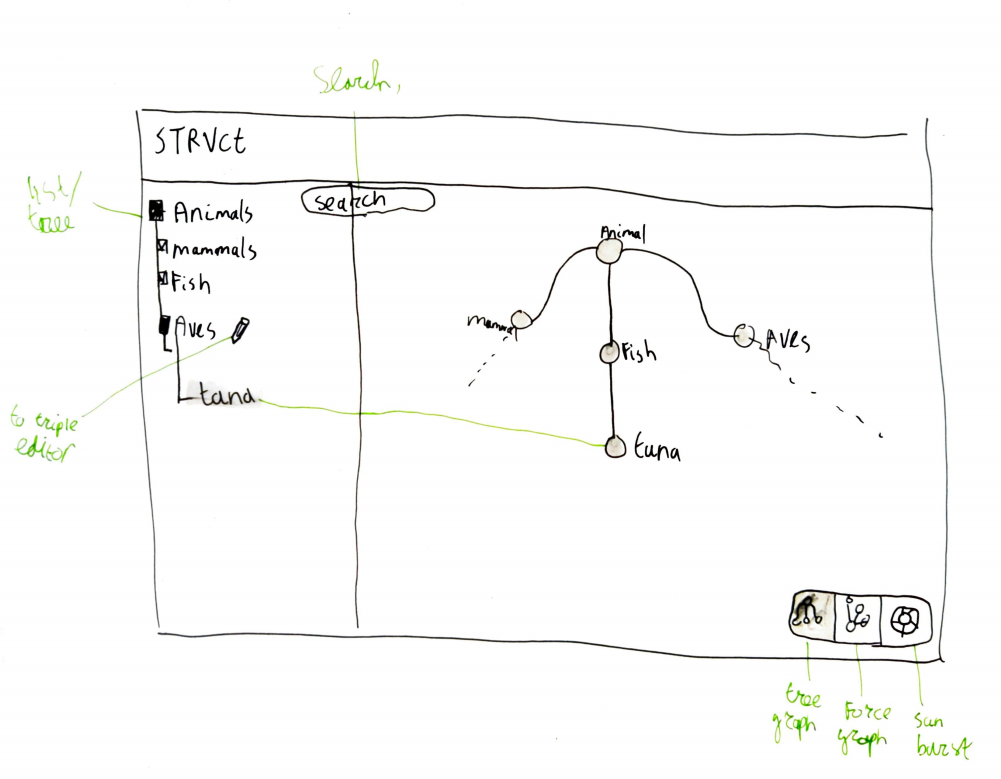 Search,
STRVCt
list/
tree
Animals
search
mammals
Fish
Aves
to triple
editor
tana
Animal
mammal
Fish
Aves
tuna
tree
graph
Force
graph
Sun
burst